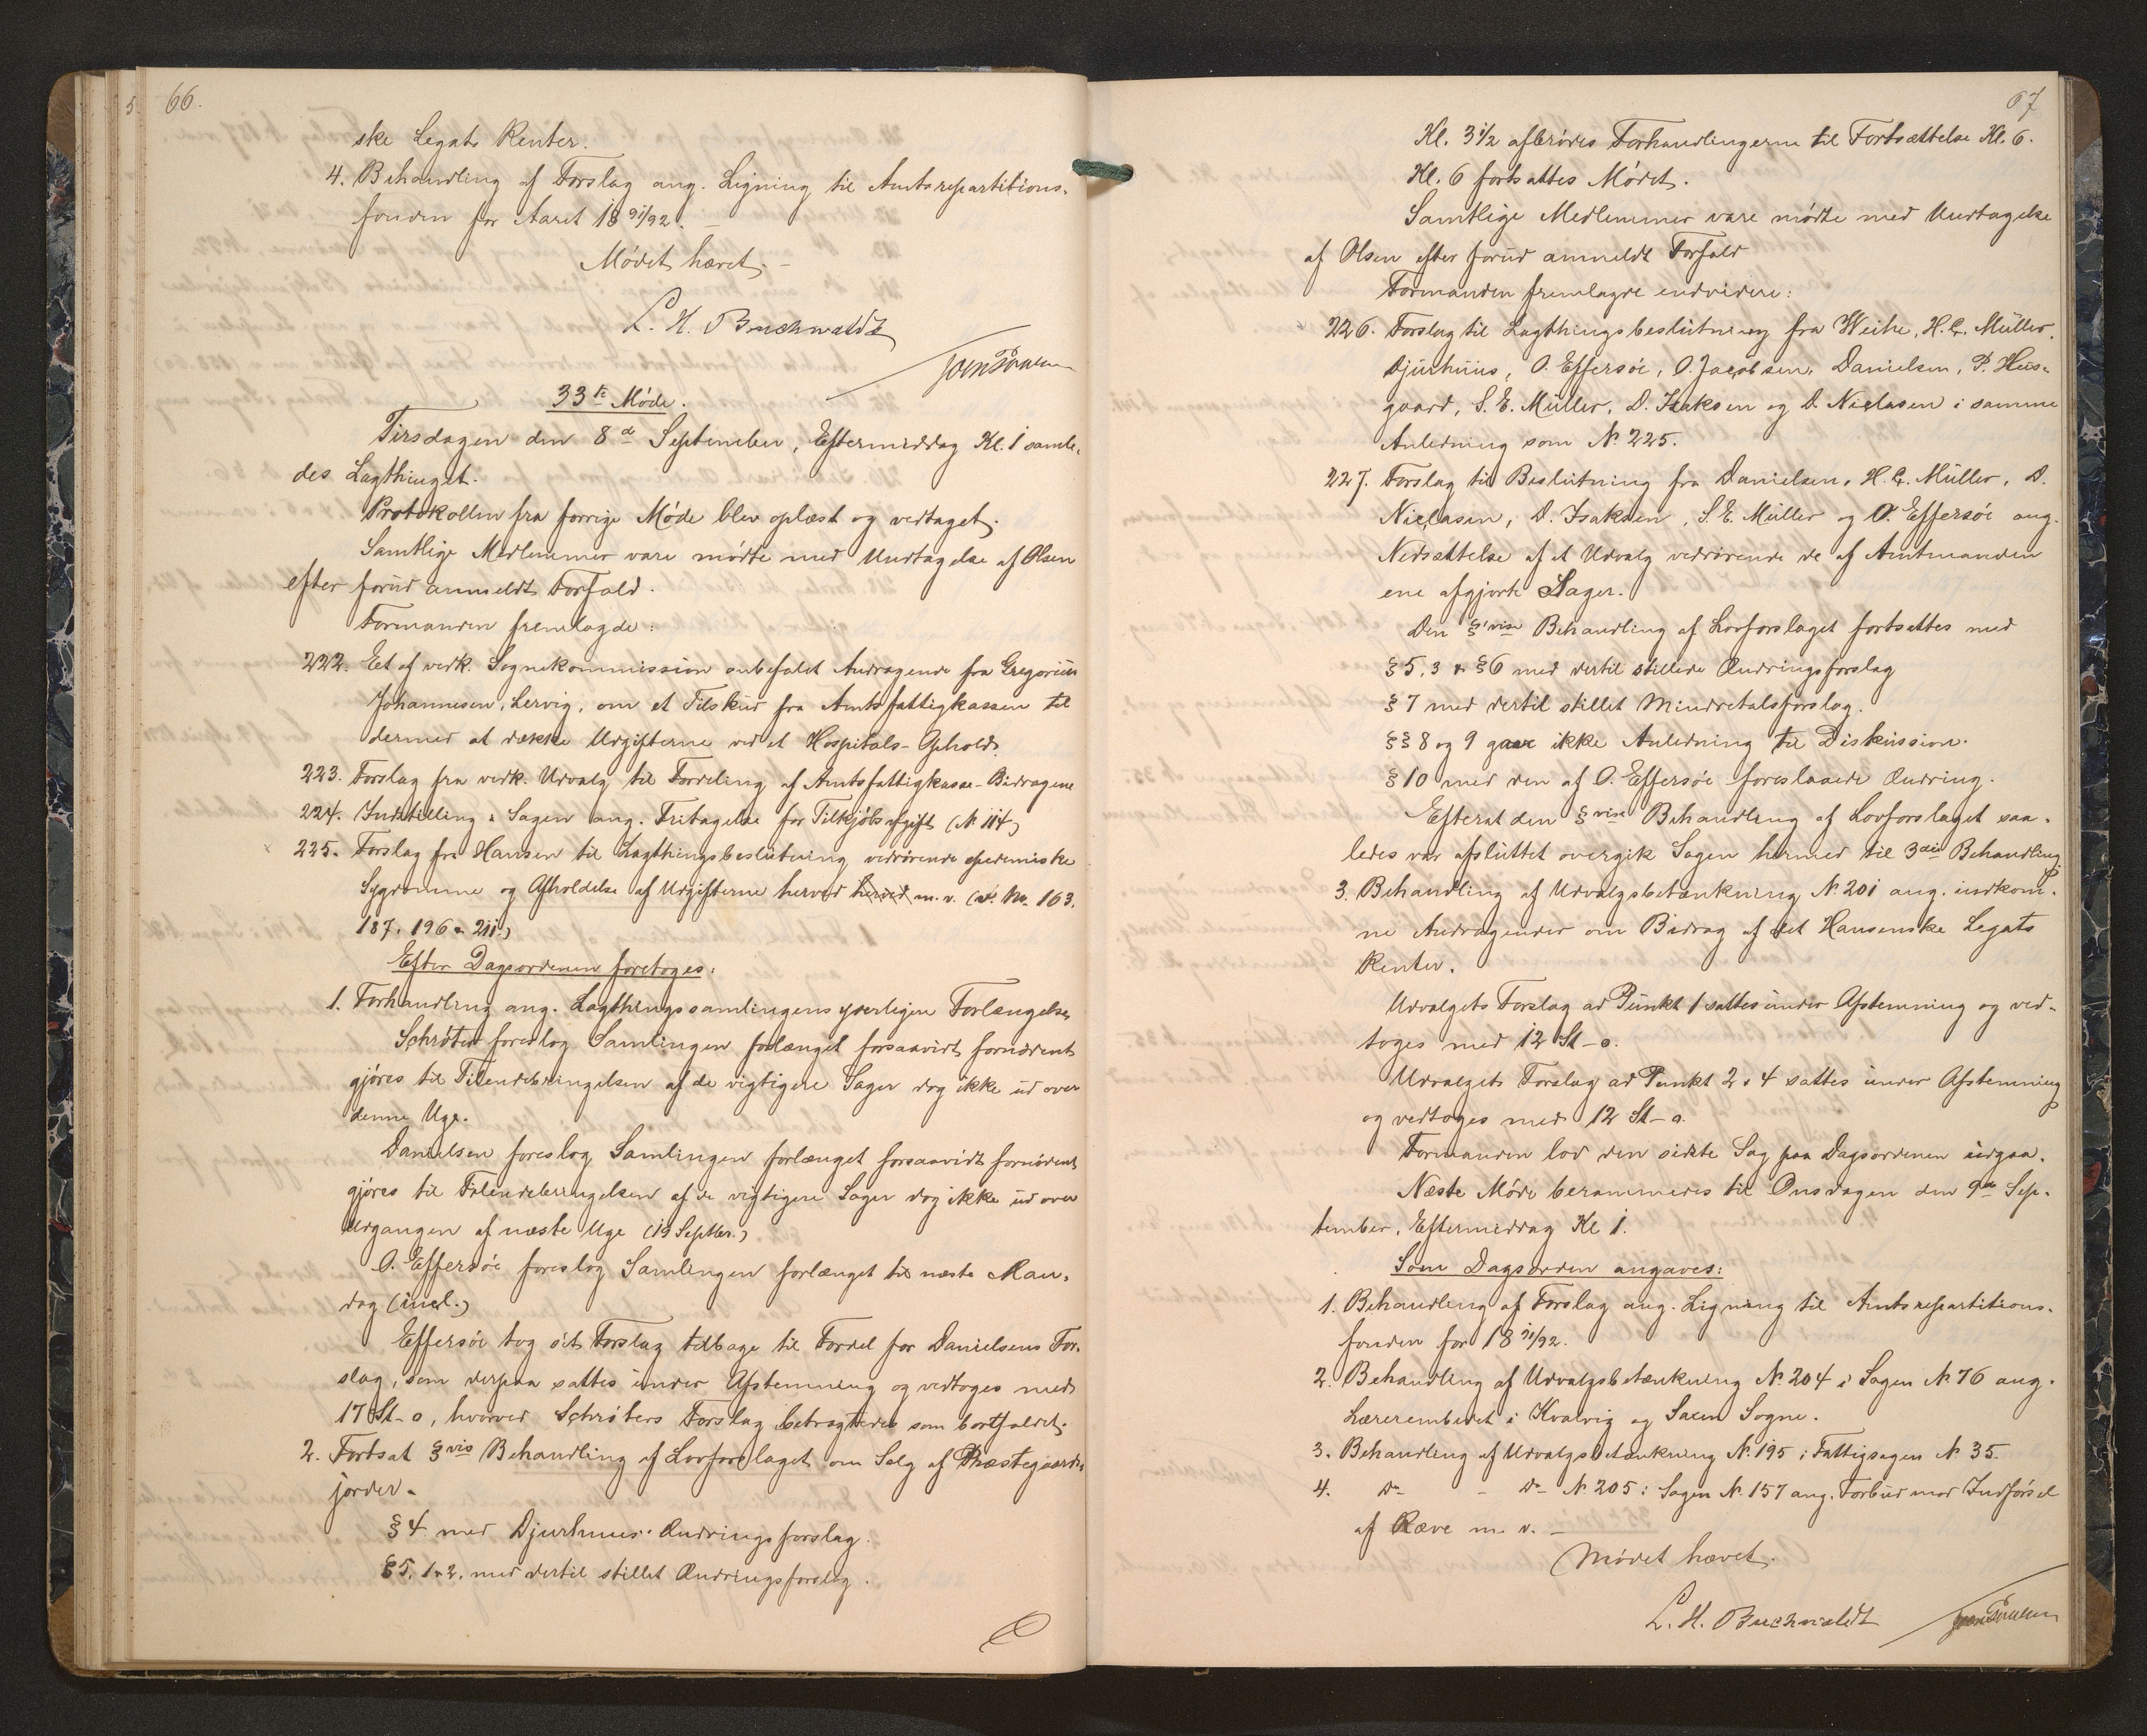 66.
ske Legats Renter.
4. Behandling af Forslag ang. Ligning til Amtsrepartitions-
fonden for Aaret 18 91/92. -
Mødet hævet. -
L. H. Buchwaldt
33te Møde.
Tirsdagen den 8de September, Eftermiddag Kl. 1 samle-
des Lagthinget.
Protokollen fra forrige Møde blev oplæst og vedtaget.
Samtlige Medlemmer vare mødte med Undtagelse af Olsen
efter forud anmeldt Forfald.
Formanden fremlagde:
222. Et af vedk. Sognekommission anbefalet Andragende fra Gregorius
Johannesen, Lervig, om et Tilskud fra Amtsfattigkassen til
dermed at dække Udgifterne ved et Hospitals-Ophold.
223. Forslag fra vedk. Udvalg til Fordeling af Amtsfattigkasse-Bidragene
224. Indstilling i Sagen ang. Fritagelse for Tilkjøbsafgift (N. 114)
225. Forslag fra Hansen til Lagthingsbeslutning vedrørende epidemiske
Sygdomme og Afholdelse af Udgifterne herved herved m. v. (cfr. No. 163.
187. 196 & 211.)
Efter Dagsordenen foretoges:
1. Forhandling ang. Lagthingssamlingens yderligere Forlængelse
Schrøter foreslog Samlingen forlænget forsaavidt fornødent
gjøres til Tilendebringelsen af de vigtigere Sager dog ikke ud over
denne Uge.
Danielsen foreslog Samlingen forlænget forsaavidt fornødent
gjøres til Tilendebringelsen af de vigtigere Sager dog ikke ud over
Udgangen af næste Uge (19 Septbr.)
O. Effersøe foreslog Samlingen forlænget til næste Man-
dag (incl.)
Effersøe tog sit Forslag tilbage til Fordel for Danielsens For-
slag, som derpaa sattes under Afstemning og vedtoges med
17 St - 0, hvorved Schrøters Forslag betragtedes som bortfaldet.
2. Fortsat §vis Behandling af Lovforslaget om Salg af Præstegaards-
jorder.
§ 4 med Djurhuus' Ændringsforslag.
§ 5, 1 & 2, med dertil stillet Ændringsforslag.
67
Kl. 3 1/2 afbrødes Forhandlingerne til Fortsættelse Kl. 6.
Kl. 6 fortsattes Mødet.
Samtlige Medlemmer vare mødte med Undtagelse
af Olsen efter forud anmeldt Forfald
Formanden fremlagde endvidere:
226. Forslag til Lagthingsbeslutning fra Weihe, H. C. Müller,
Djurhuus, O. Effersøe, O. Jacobsen, Danielsen, P. Hus-
gaard, S. E. Müller, D. Isaksen og D. Niclasen i samme
Anledning som N. 225.
227. Forslag til Beslutning fra Danielsen, H. C. Müller, D.
Niclasen, D. Isaksen, S. E. Müller og O. Effersøe ang.
Nedsættelse af et Udvalg vedrørende de af Amtmanden
ene afgjorte Sager.
Den §'vise Behandling af Lovforslaget fortsattes med
§ 5, 3 & § 6 med dertil stillede Ændringsforslag
§ 7 med dertil stillet Mindretalsforslag.
§§ 8 og 9 gave ikke Anledning til Diskussion.
§ 10 med den af O. Effersøe foreslaaede Ændring.
Efterat den §vise Behandling af Lovforslaget saa-
ledes var afsluttet overgik Sagen hermed til 3die Behandling
3. Behandling af Udvalgsbetænkning N. 201 ang. indkom-
ne Andragender om Bidrag af det Hansenske Legats
Renter.
Udvalgets Forslag ad Punkt 1 sattes under Afstemning og ved-
toges med 12 St - 0.
Udvalgets Forslag ad Punkt 2 & 4 sattes under Afstemning
og vedtoges med 12 St - 0.
Formanden lod den sidste Sag paa Dagsordenen udgaa.
Næste Møde berammedes til Onsdagen den 9de Sep-
tember, Eftermiddag Kl 1.
Som Dagsorden angaves:
1. Behandling af Forslag ang. Ligning til Amtsrepartitions-
fonden for 18 91/92.
2. Behandling af Udvalgsbetænkning N. 204 i Sagen N. 76 ang.
Lærerembedet i Kvalvig og Saxen Sogne.
3. Behandling af Udvalgsbetænkning N. 195 i Fattigsagen N. 35.
4. Do - Do N. 205 i Sagen N. 157 ang. Forbud mod Indførsel
af Ræve m. v. -
Mødet hævet.
L. H. Buchwaldt